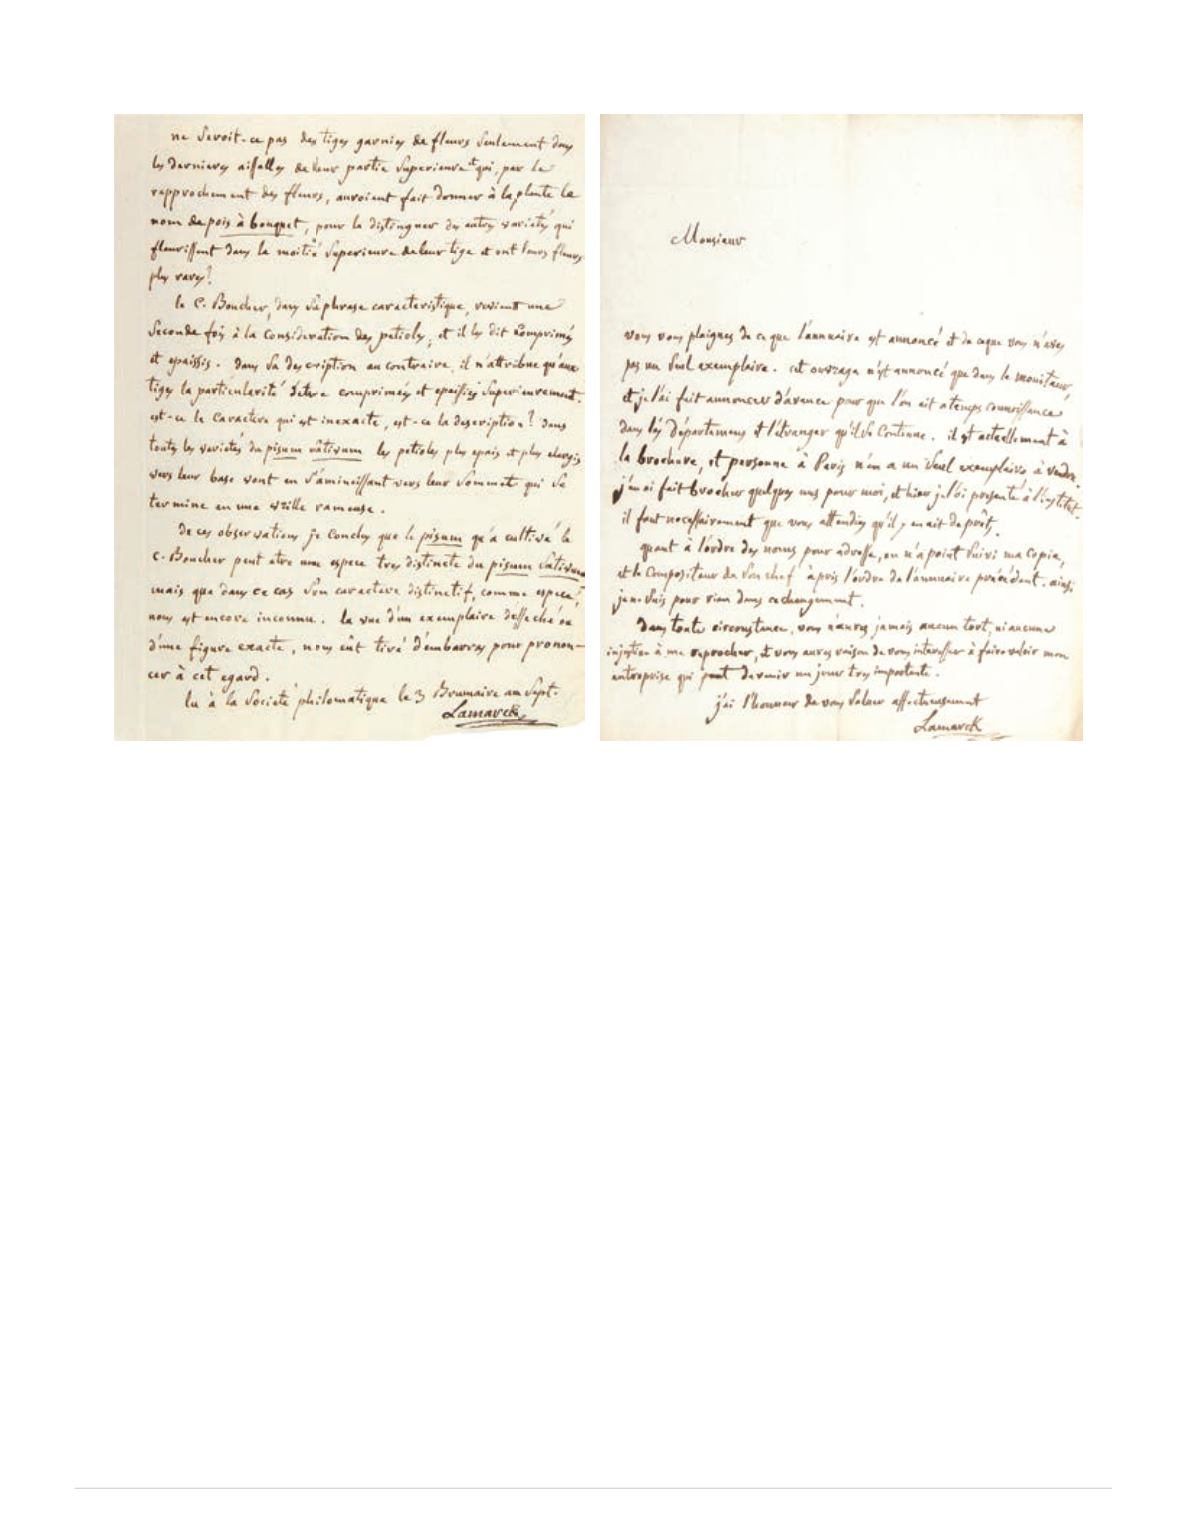 ne seroit-ce pas des tiges garnies de fleurs seulement dans
les dernieres aisselles de leur partie superieure et qui, par le
rapprochement des fleurs, auroient fait donner à la plante le
nom de pois à bouquet, pour la distinguer des autres varietés qui
fleurissent dans la moitié superieure de leur tige et ont leurs fleurs
plus rares?
le C. Boucher, dans sa phrase caracteristique, revient une
seconde fois à la consideration des petioles; et il les dit comprimés
et epaissis. dans sa description au contraire, il n'attribue qu'aux
tiges la particularité d'etre comprimées et epaissies superieurement.
est-ce le caractere qui est inexacte, est-ce la description? dans
toutes les varietés du pisum sativum les petioles plus epais et plus elargis
vers leur base vont en s'amincissant vers leur sommet qui se
termine en une vrille rameuse.
de ces observations je conclus que le pisum qu'a cultivé le
C. Boucher peut etre une espece tres distincte du pisum sativum
mais que dans ce cas son caractere distinctif, comme espece,
nous est encore inconnu. la vue d'un exemplaire desseché ou
d'une figure exacte, nous eût tiré d'embarras pour pronon-
cer à cet egard.
lu à la Societé philomatique le 3 Brumaire an Sept.
Lamarck
Monsieur
vous vous plaignes de ce que l'annuaire est annoncé et de ce que vous n'aves
pas un seul exemplaire. cet ouvrage n'est annoncé que dans le moniteur,
et je l'ai fait annoncer d'avance pour que l'on ait a temps connoissance
dans les départemens et l'étranger qu'il se continue. il est actuellement à
la brochure, et personne à Paris n'en a un seul exemplaire à vendre.
j'en ai fait brocher quelques uns pour moi, et hier je l'ai presenté à l'institut.
il faut necessairement que vous attendies qu'il y en ait de prêts.
quant à l'ordre des noms pour adresse, on n'a point suivi ma copie,
et le compositeur de son chef a pris l'ordre de l'annuaire précédent. ainsi,
je ne suis pour rien dans ce changement.
dans toute circonstance, vous n'aures jamais aucun tort, ni aucune
injustice à me reprocher, et vous aures raison de vous interesser à faire valoir mon
entreprise qui peut devenir un jour tres importante.
j'ai l'honneur de vous saluer affectueusement
Lamarck